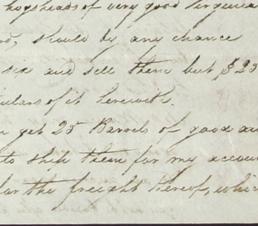 hogsheads of very good Virginia
should be any chance
six and sell them but $ 25
culars of it herewith.
get 25 Barrels of good
to ship them for my account
for the freight thereof, which